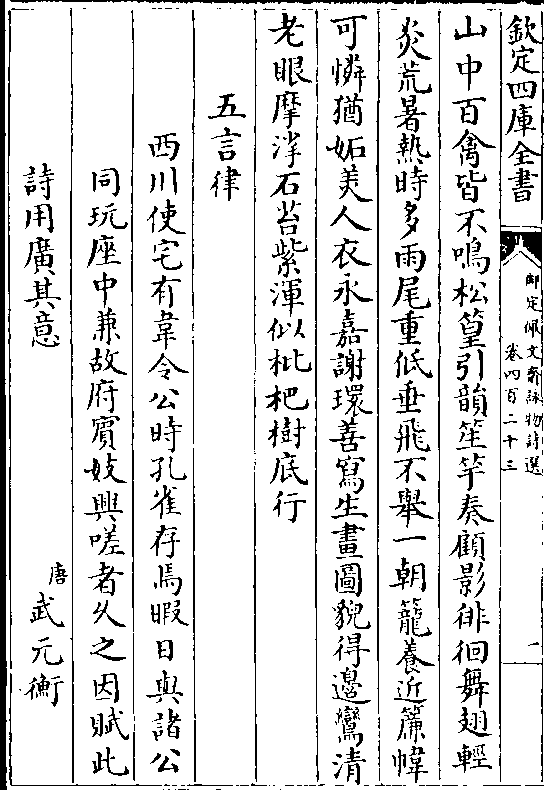 欽定四庫全書
御定佩文齋詠物詩選
卷四百二十三
一
山中百禽皆不鳴松篁引韻笙竽奏顧影徘徊舞翅輕
炎荒暑熱時多雨尾重低垂飛不舉一朝籠養近簾幃
可憐猶妬美人衣永嘉謝環善寫生畫圖貌得邊鸞清
老眼摩挲石苔紫渾似枇杷樹底行
五言律
西川使宅有韋令公時孔雀存焉暇日與諸公
同玩座中兼故府賓妓興嗟者久之因賦此
詩用廣其意
唐武元衡